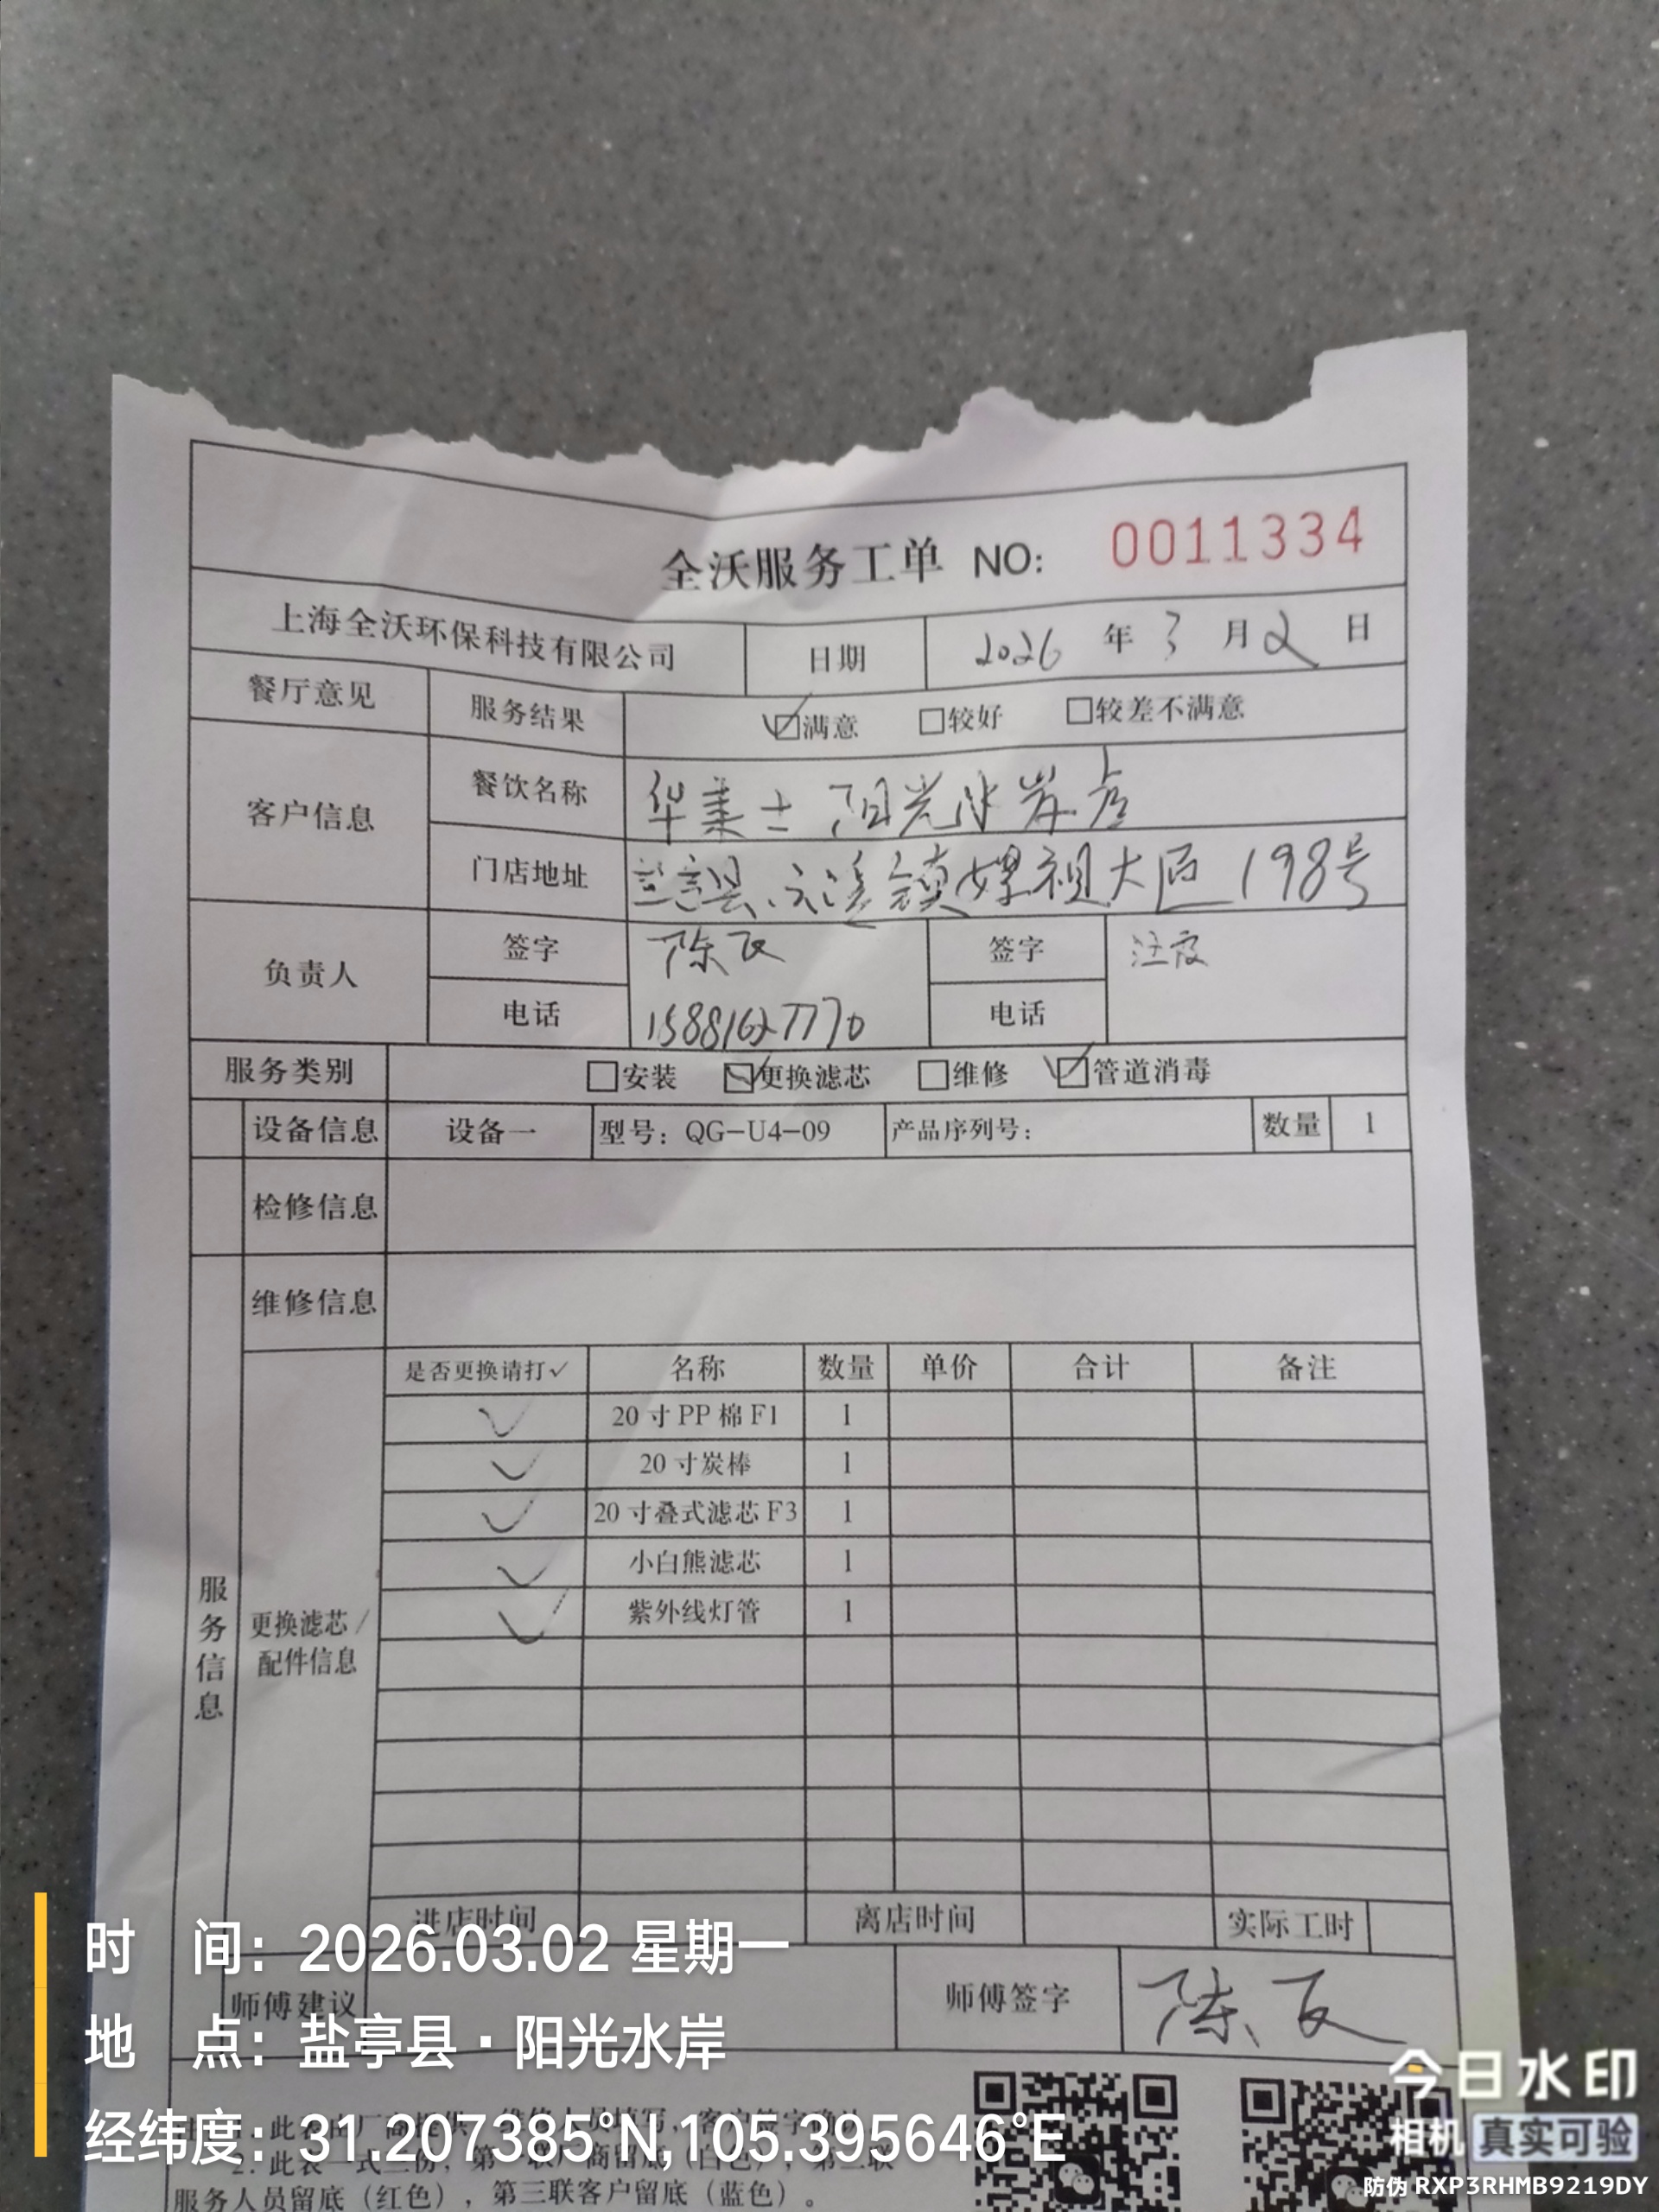 全沃服务工单 NO: 0011334
上海全沃环保科技有限公司 日期 2026 年 3 月 2 日
餐厅意见 服务结果 ☑满意 □较好 □较差不满意
客户信息 餐饮名称 华莱士 阳光水岸店
门店地址 县云溪镇嫘祖大 198号
负责人 签字 陈 签字 汪
电话 15881627770 电话
服务类别 □安装 ☑更换滤芯 □维修 ☑管道消毒
设备信息 设备一 型号：QG-U4-09 产品序列号： 数量 1
检修信息
维修信息
服务信息
更换滤芯/
配件信息
是否更换请打✓ 名称 数量 单价 合计 备注
✓ 20寸PP棉F1 1
✓ 20寸炭棒 1
✓ 20寸叠式滤芯F3 1
✓ 小白熊滤芯 1
✓ 紫外线灯管 1
进店时间 离店时间 实际工时
师傅建议 师傅签字 陈
时 间：2026.03.02 星期一
地 点：盐亭县·阳光水岸
经纬度：31.207385°N,105.395646°E
此表由厂商提供，维修人员填写，客户签字确认
2. 此表一式三份，第一联厂商留底（白色），第二联
服务人员留底（红色），第三联客户留底（蓝色）。
今日水印
相机 真实可验
防伪 RXP3RHMB9219DY